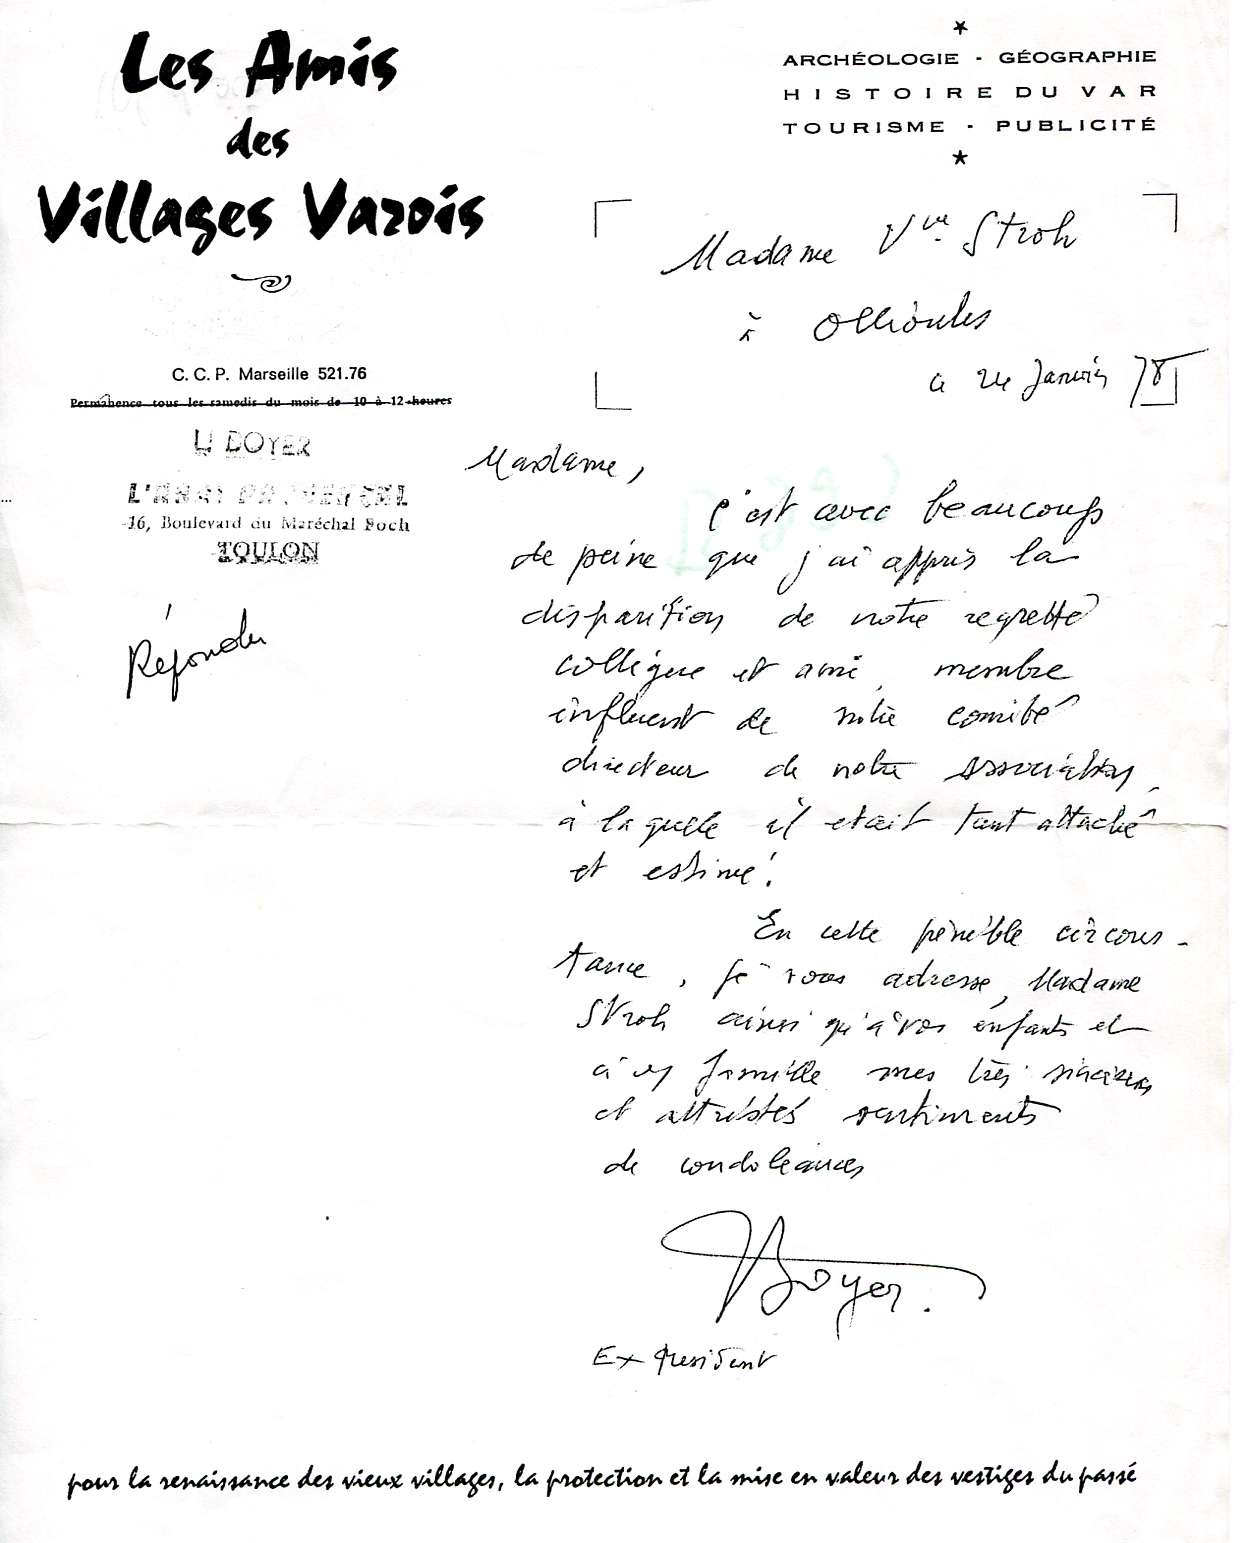 Les Amis
des
Villages Varois
ARCHÉOLOGIE - GÉOGRAPHIE
HISTOIRE DU VAR
TOURISME - PUBLICITÉ
C. C. P. Marseille 521.76
Permanence tous les samedis du mois de 10 à 12 heures
BOYER
16, Boulevard du Maréchal Foch
TOULON
Répondu
Madame Vve Stroh
à Ollioules
24 Janvier 78
Madame,
c'est avec beaucoup
de peine que j'ai appris la
disparition de notre regretté
collègue et ami, membre
influent de notre comité
directeur de notre association,
à laquelle il etait tant attaché
et estimé!
En cette pénible circons-
tance, je vous adresse, Madame
Stroh ainsi qu'à vos enfants et
à famille mes très sincères
et attristés sentiments
de condoléances
Boyer.
Ex President
pour la renaissance des vieux villages, la protection et la mise en valeur des vestiges du passé